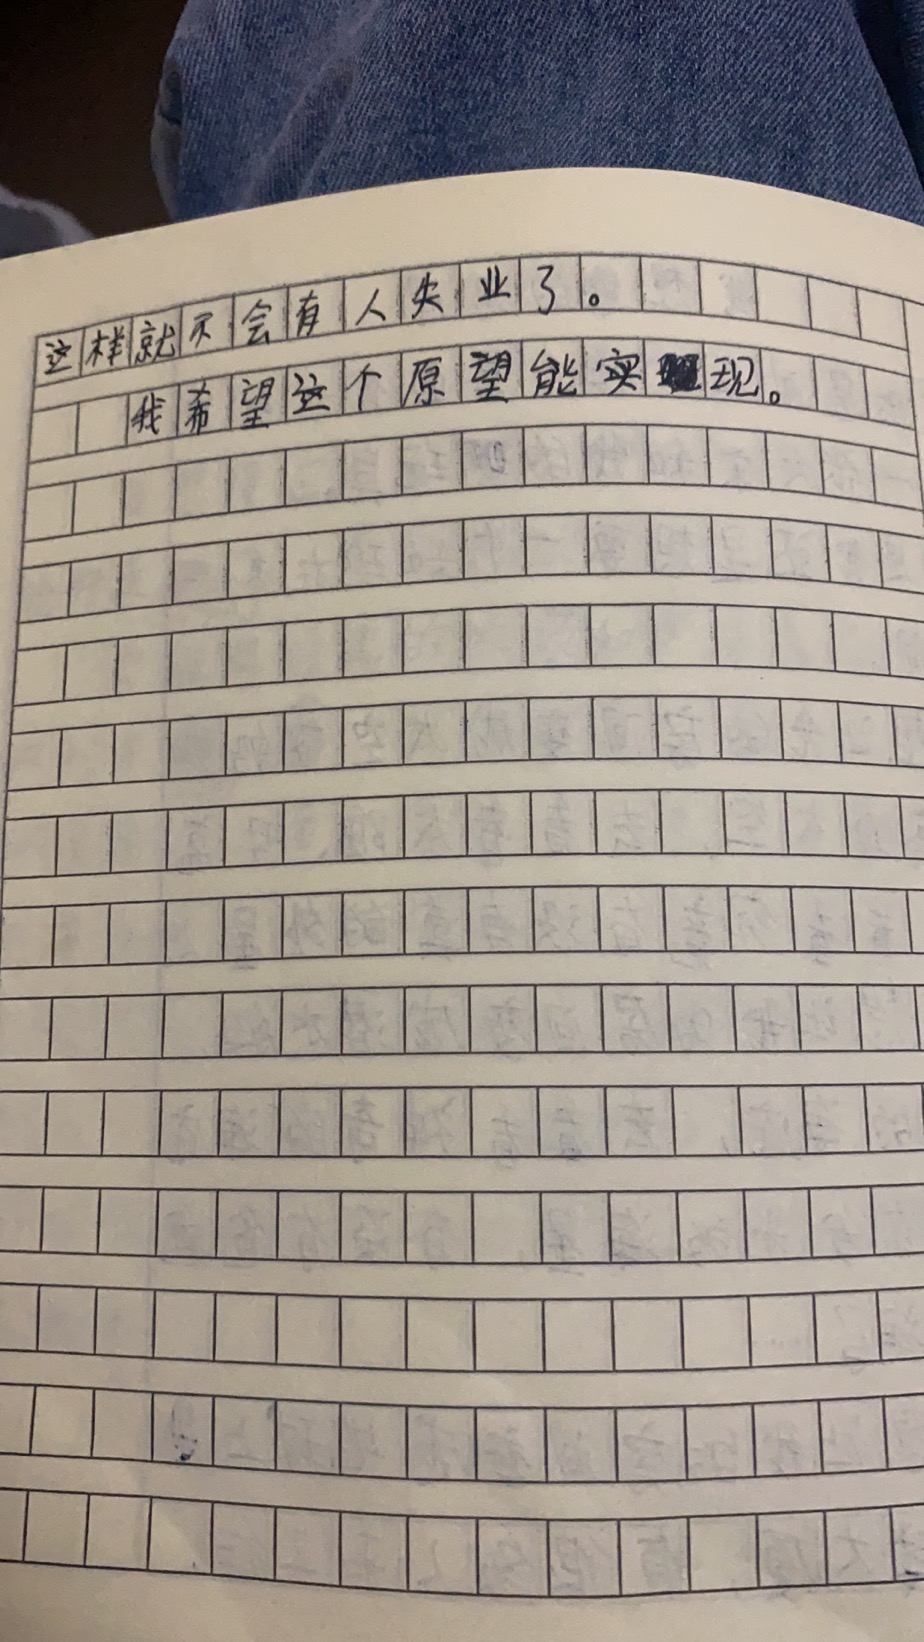 这样就不会有人失业了。
我希望这个原望能实现。